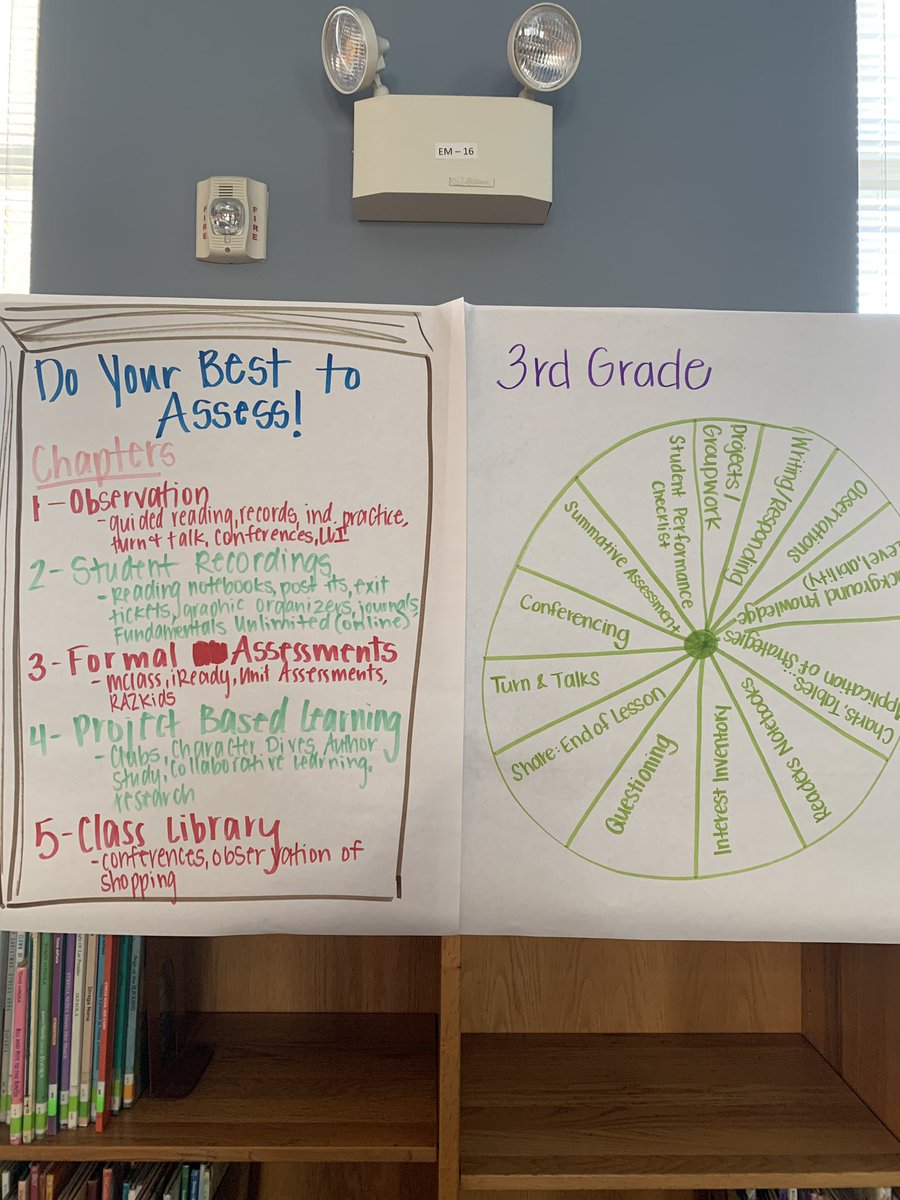 EM - 16
FIRE
FIRE
Do Your Best to
Assess!
Chapters
1 - Observation
- guided reading, records, ind. practice,
turn + talk, conferences, LLI
2 - Student Recordings
- Reading notebooks, post its, exit
tickets, graphic organizers, journals,
Fundamentals Unlimited (online)
3 - Formal Assessments
- mclass, iReady, Unit Assessments,
RAZKids
4 - Project Based Learning
- Clubs, Character Dives, Author
Study, Collaborative Learning,
research
5 - Class Library
- conferences, observation of
shopping
3rd Grade
Projects/
Groupwork
Writing/Responding
Observations
Background Knowledge
Level, ability)
Application of Strategies
Charts, Tables...
Readers Notebooks
Interest Inventory
Questioning
Share: End of Lesson
Turn & Talks
Conferencing
Summative Assessment
Student Performance
Checklist
Strega Nona